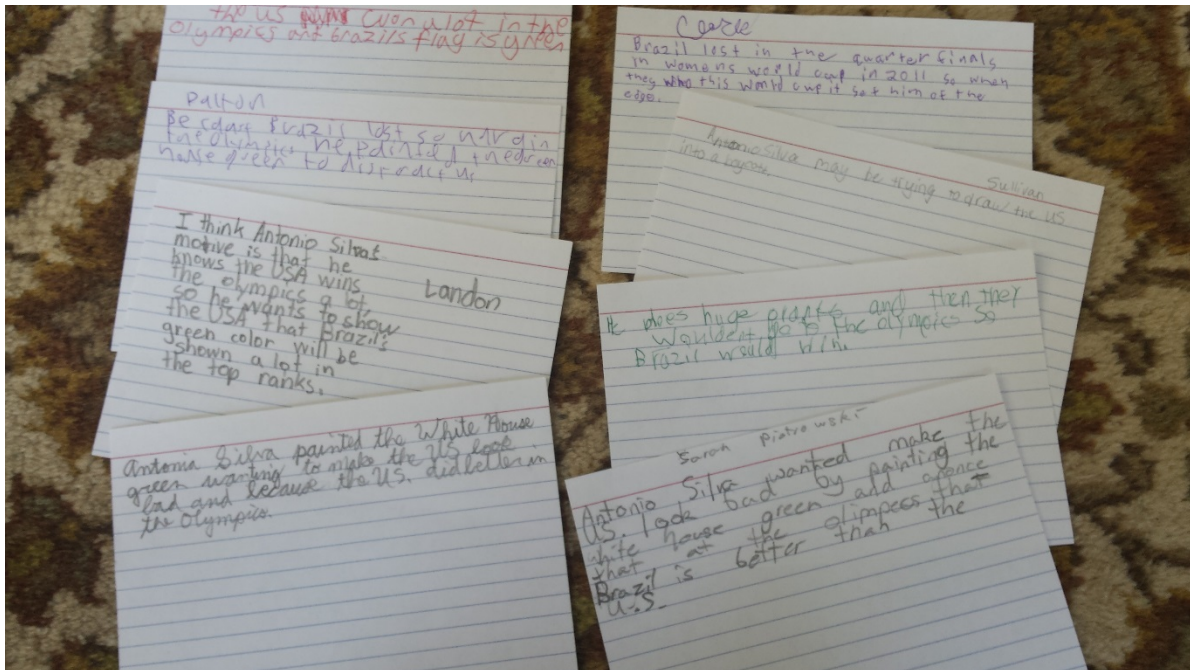 the US won a lot in the
Olympics and Brazils flag is green
Dalton
Because Brazil lost so hard in
the olympics he painted the green
house green to distract us
I think Antonio Silvas
motive is that he
knows the USA wins
the olympics a lot
so he wants to show
the USA that Brazil's
green color will be
shown a lot in
the top ranks.
Landon
Antonia Silva painted the White House
green wanting to make the US look
bad and because the U.S. did better in
the Olympics.
Brazil lost in the quarter finals
in womens world cup in 2011 so when
they who this world cup it set him of the
edge.
Sullivan
Antonio Silva may be trying to draw the US
into a
He does huge pranks and then they
wouldent go to the olympics so
Brazil would win.
Sarah Piotrowski
Antonio Silva wanted make the
U.S. look bad by painting the
white house green and
that at the olimpecs that
Brazil is better than the
U.S.